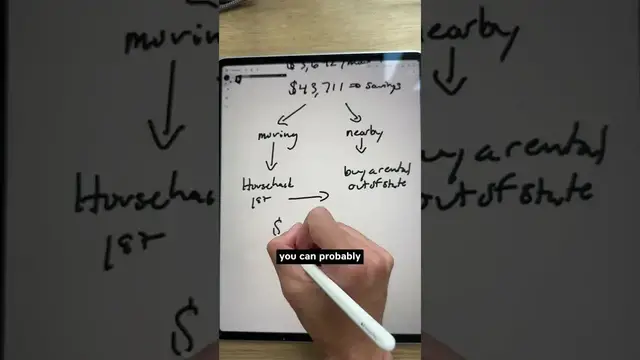 $43,711 => savings
moving nearby
Househack
1st
buy a rental
out of state
$
you can probably